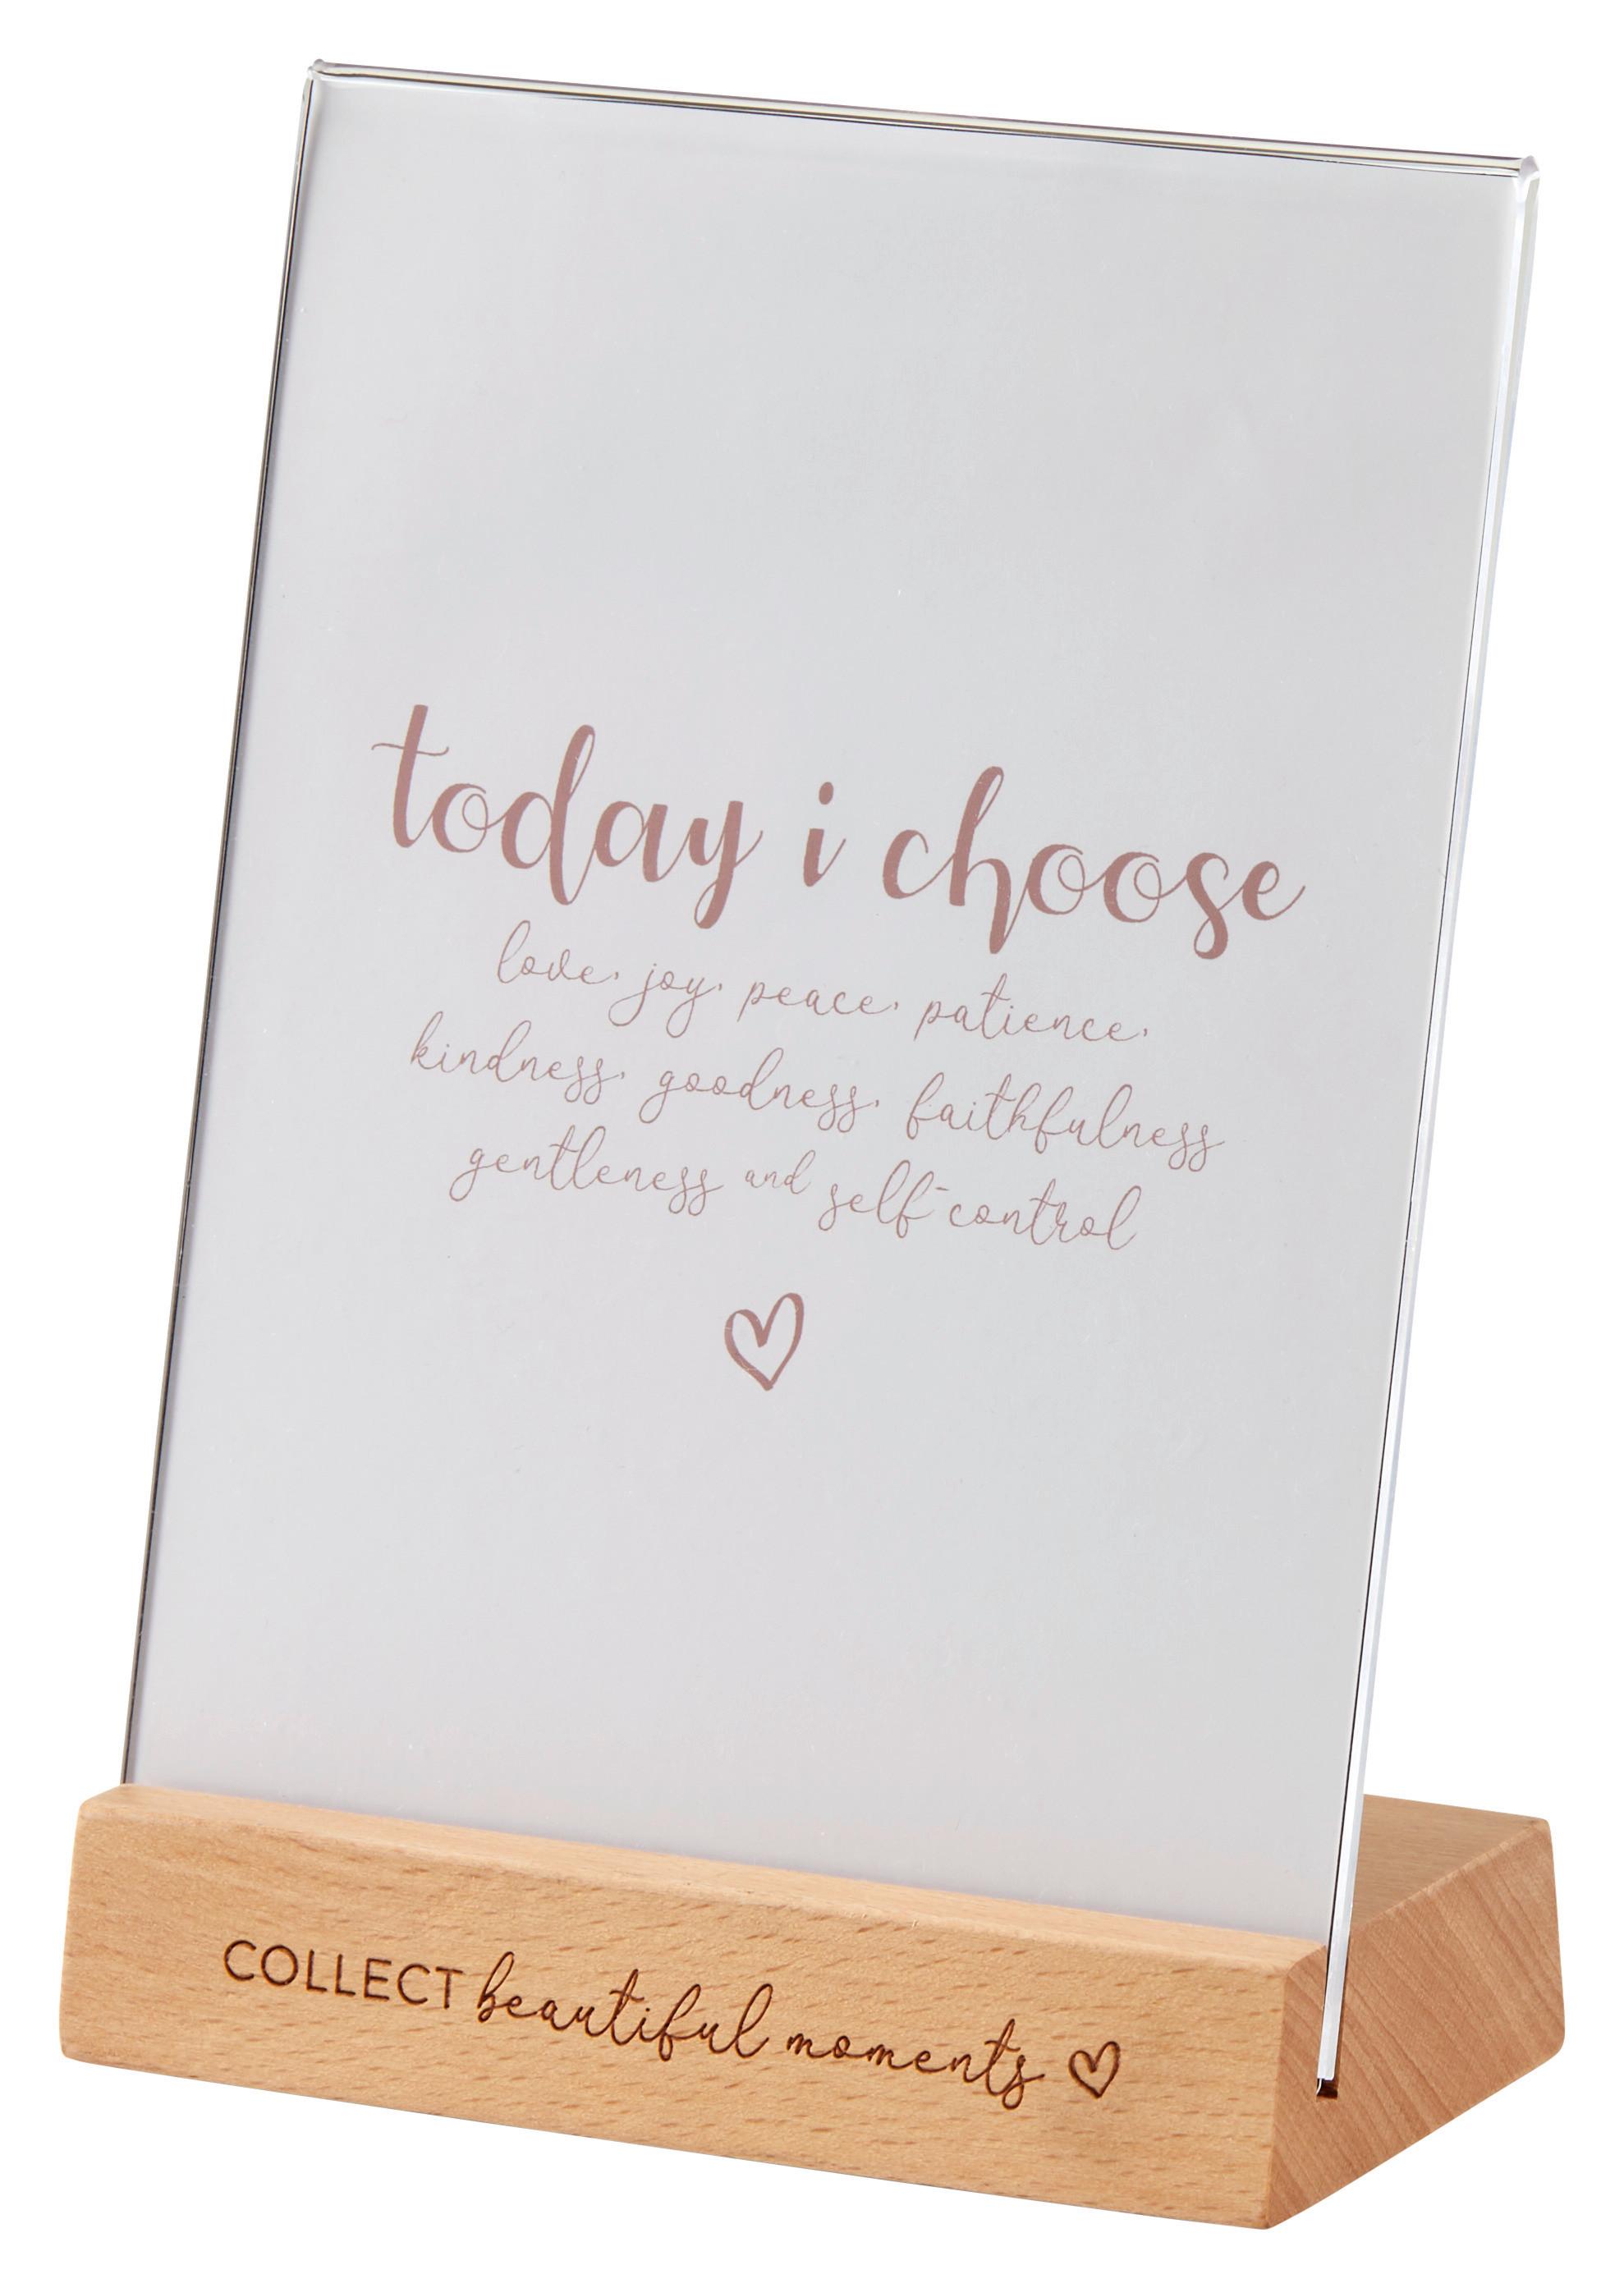 today i choose
love, joy, peace, patience,
kindness, goodness, faithfulness
gentleness and self-control
COLLECT beautiful moments